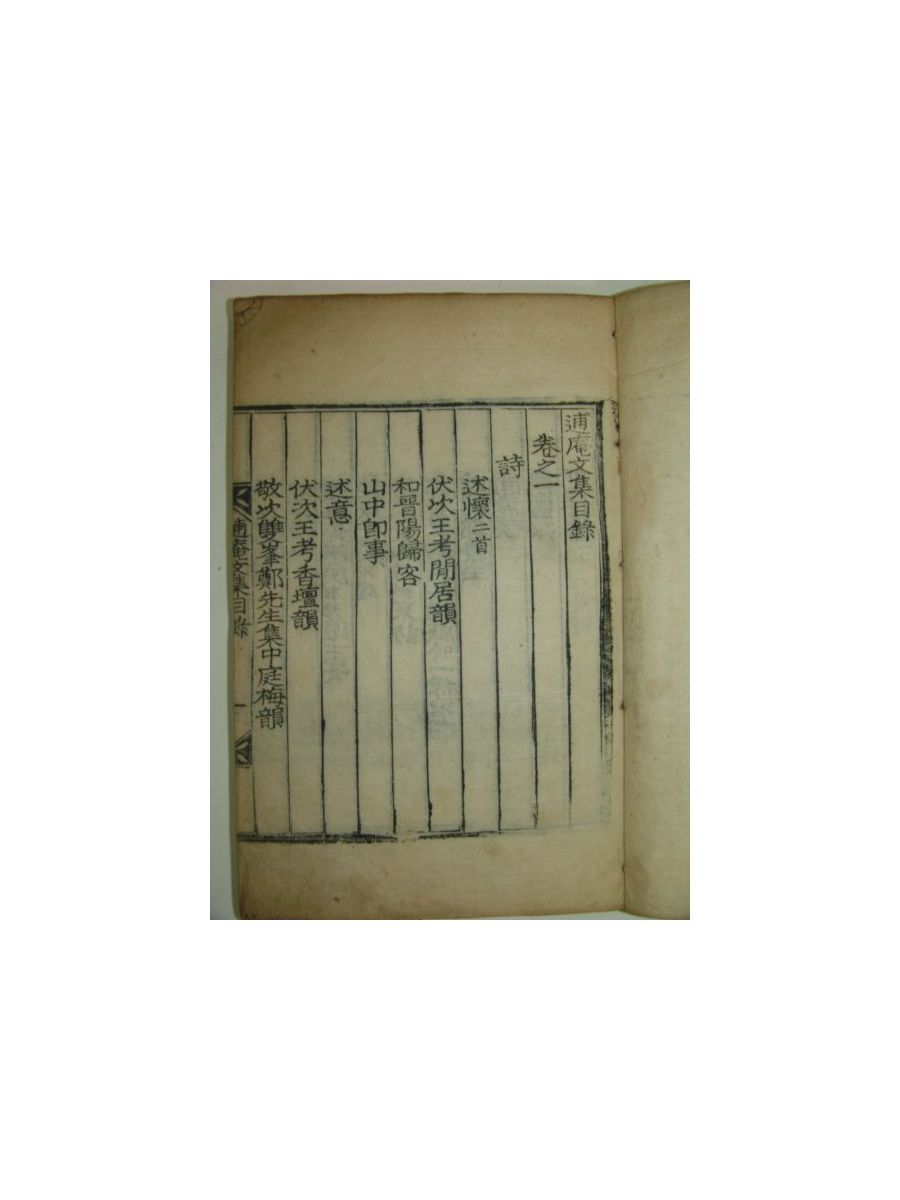 逋庵文集目錄
卷之一
詩
述懷二首
伏次王考閒居韻
和晋陽歸客
山中卽事
述意
伏次王考香壇韻
敬次雙峯鄭先生集中庭梅韻
逋庵文集目錄 一